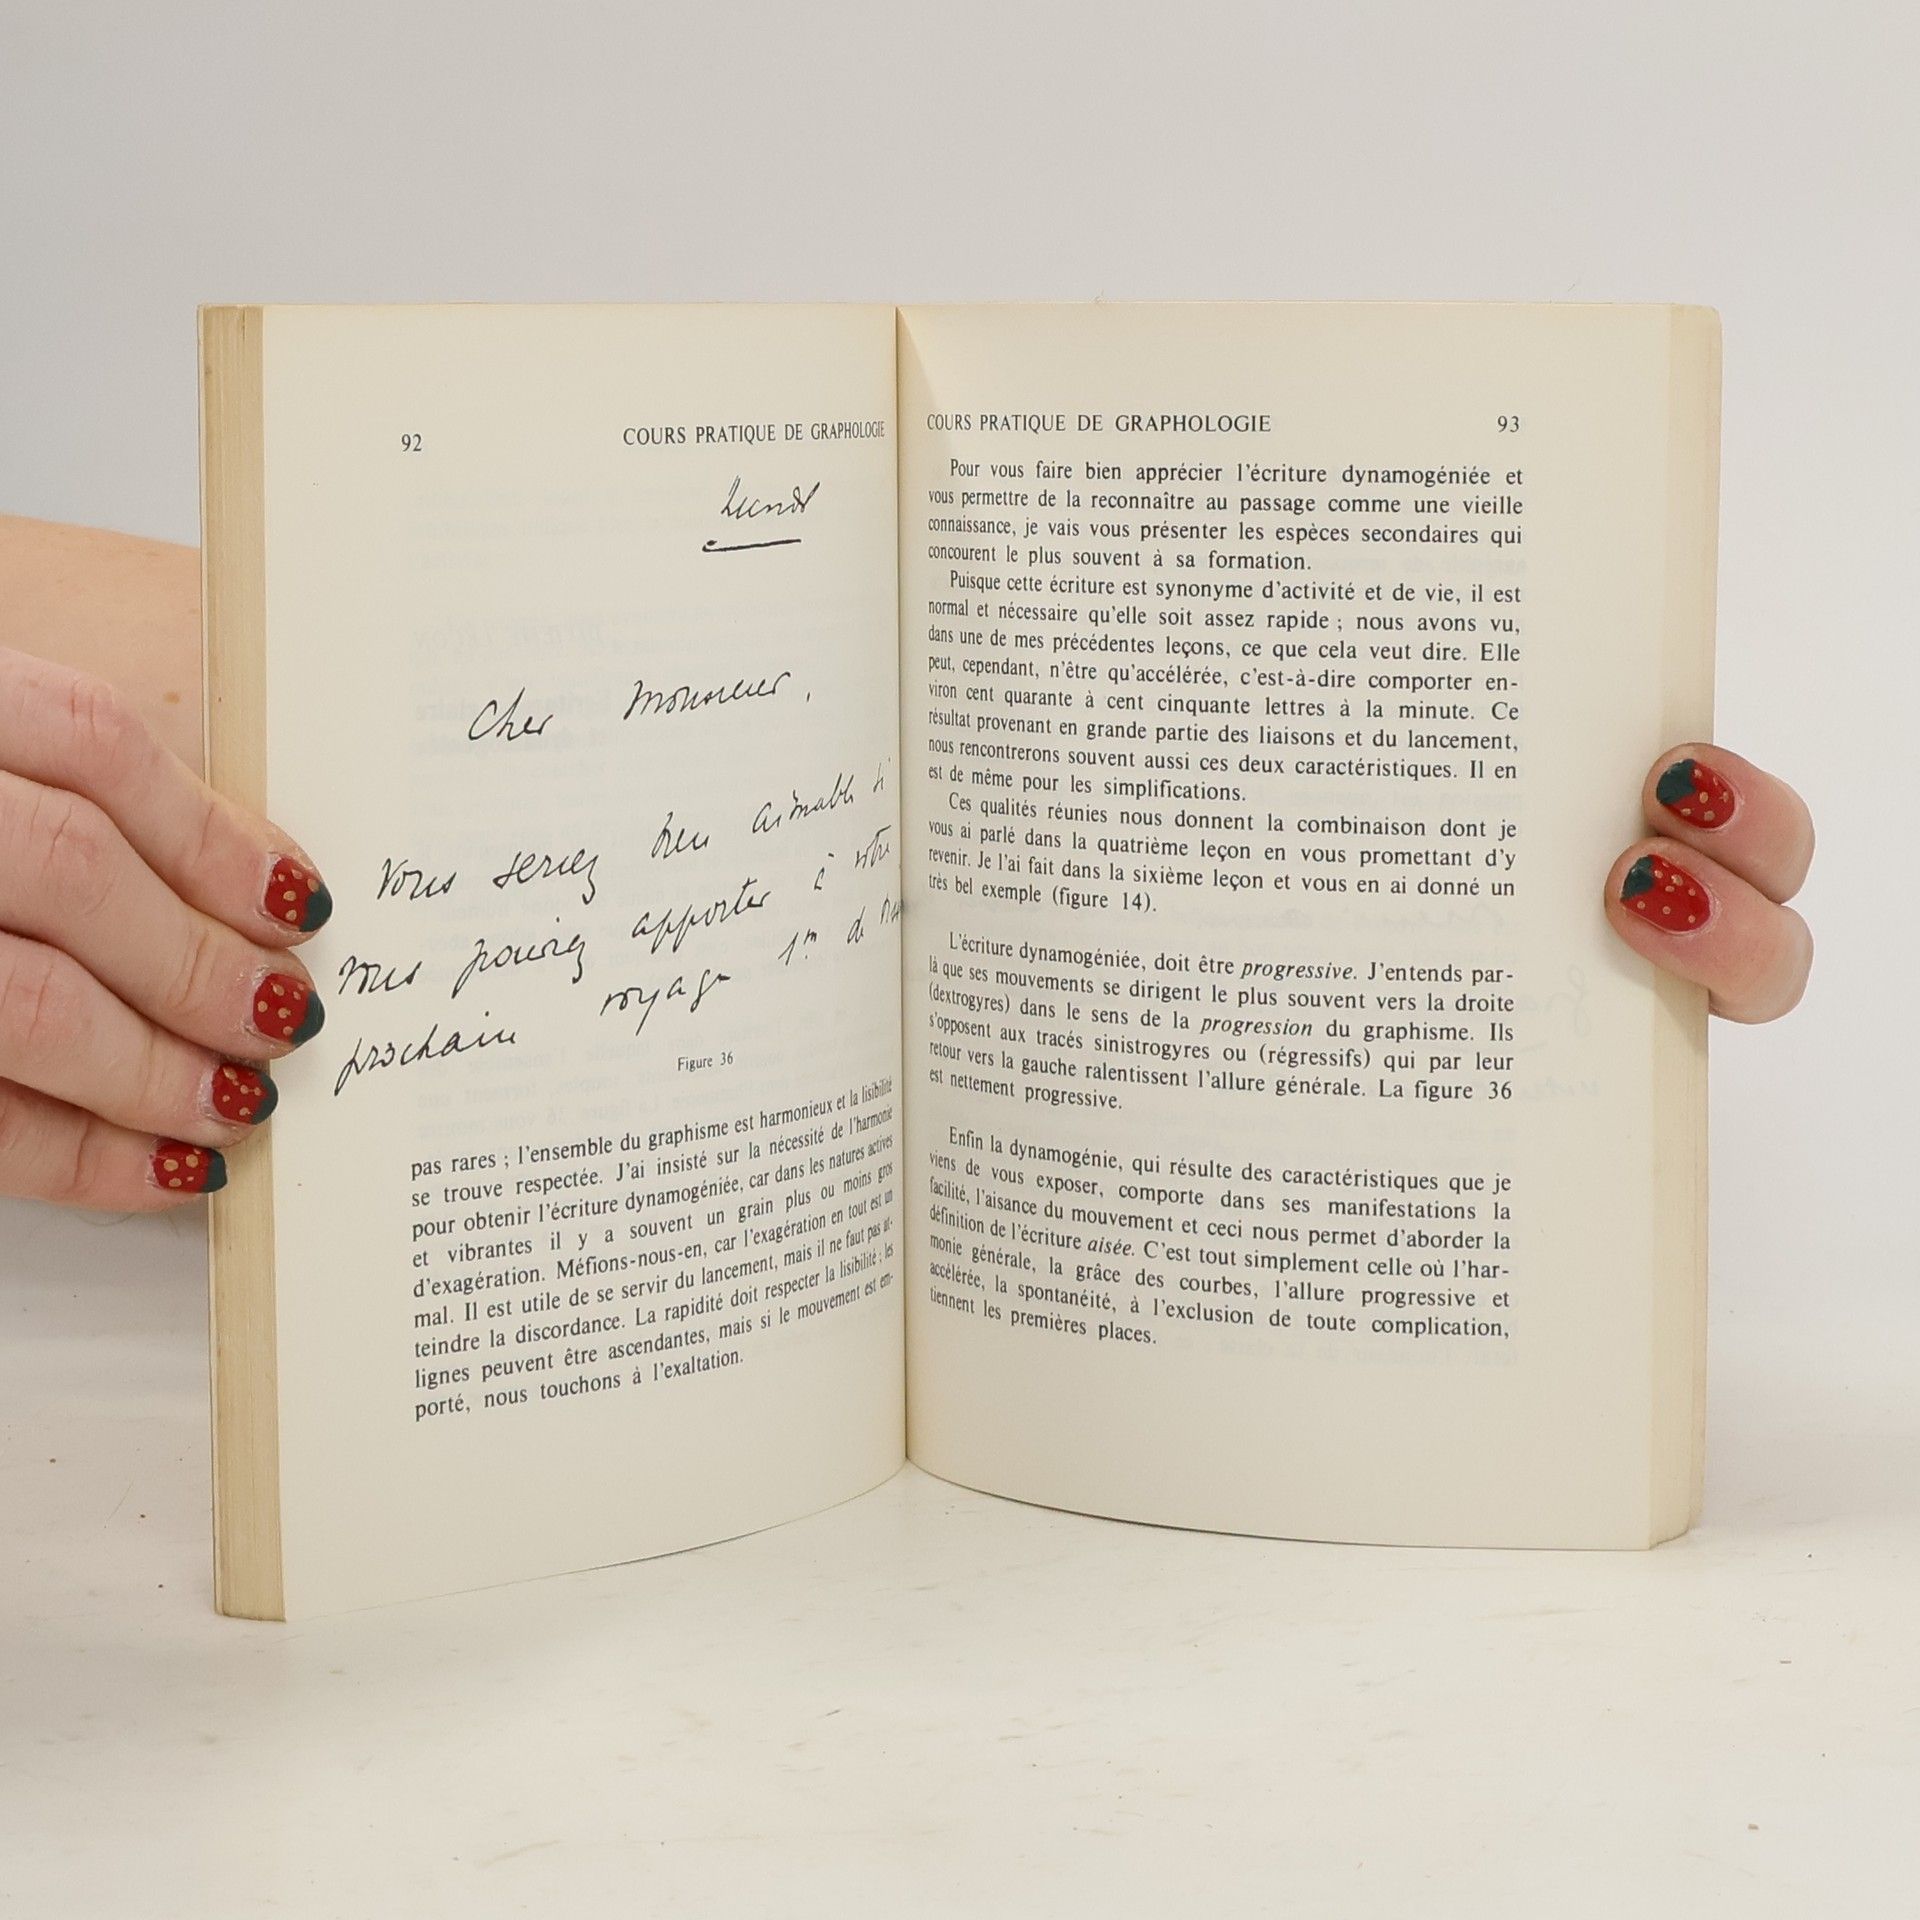 92 COURS PRATIQUE DE GRAPHOLOGIE
Lundi
Cher Monsieur,
Vous seriez bien aimable si
vous pouviez apporter à votre
prochain voyage 1m de
Figure 36
pas rares ; l'ensemble du graphisme est harmonieux et la lisibilité
se trouve respectée. J'ai insisté sur la nécessité de l'harmonie
pour obtenir l'écriture dynamogéniée, car dans les natures actives
et vibrantes il y a souvent un grain plus ou moins gros
d'exagération. Méfions-nous-en, car l'exagération en tout est un
mal. Il est utile de se servir du lancement, mais il ne faut pas at-
teindre la discordance. La rapidité doit respecter la lisibilité ; les
lignes peuvent être ascendantes, mais si le mouvement est em-
porté, nous touchons à l'exaltation.
COURS PRATIQUE DE GRAPHOLOGIE 93
Pour vous faire bien apprécier l'écriture dynamogéniée et
vous permettre de la reconnaître au passage comme une vieille
connaissance, je vais vous présenter les espèces secondaires qui
concourent le plus souvent à sa formation.
Puisque cette écriture est synonyme d'activité et de vie, il est
normal et nécessaire qu'elle soit assez rapide ; nous avons vu,
dans une de mes précédentes leçons, ce que cela veut dire. Elle
peut, cependant, n'être qu'accélérée, c'est-à-dire comporter en-
viron cent quarante à cent cinquante lettres à la minute. Ce
résultat provenant en grande partie des liaisons et du lancement,
nous rencontrerons souvent aussi ces deux caractéristiques. Il en
est de même pour les simplifications.
Ces qualités réunies nous donnent la combinaison dont je
vous ai parlé dans la quatrième leçon en vous promettant d'y
revenir. Je l'ai fait dans la sixième leçon et vous en ai donné un
très bel exemple (figure 14).
L'écriture dynamogéniée, doit être progressive. J'entends par-
là que ses mouvements se dirigent le plus souvent vers la droite
(dextrogyres) dans le sens de la progression du graphisme. Ils
s'opposent aux tracés sinistrogyres ou (régressifs) qui par leur
retour vers la gauche ralentissent l'allure générale. La figure 36
est nettement progressive.
Enfin la dynamogénie, qui résulte des caractéristiques que je
viens de vous exposer, comporte dans ses manifestations la
facilité, l'aisance du mouvement et ceci nous permet d'aborder la
définition de l'écriture aisée. C'est tout simplement celle où l'har-
monie générale, la grâce des courbes, l'allure progressive et
accélérée, la spontanéité, à l'exclusion de toute complication,
tiennent les premières places.